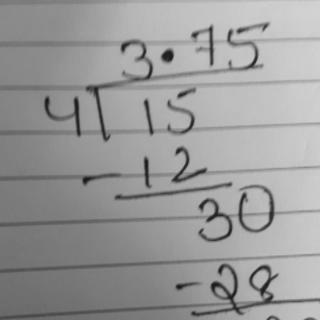 3.75
4 15
-12
30
-28